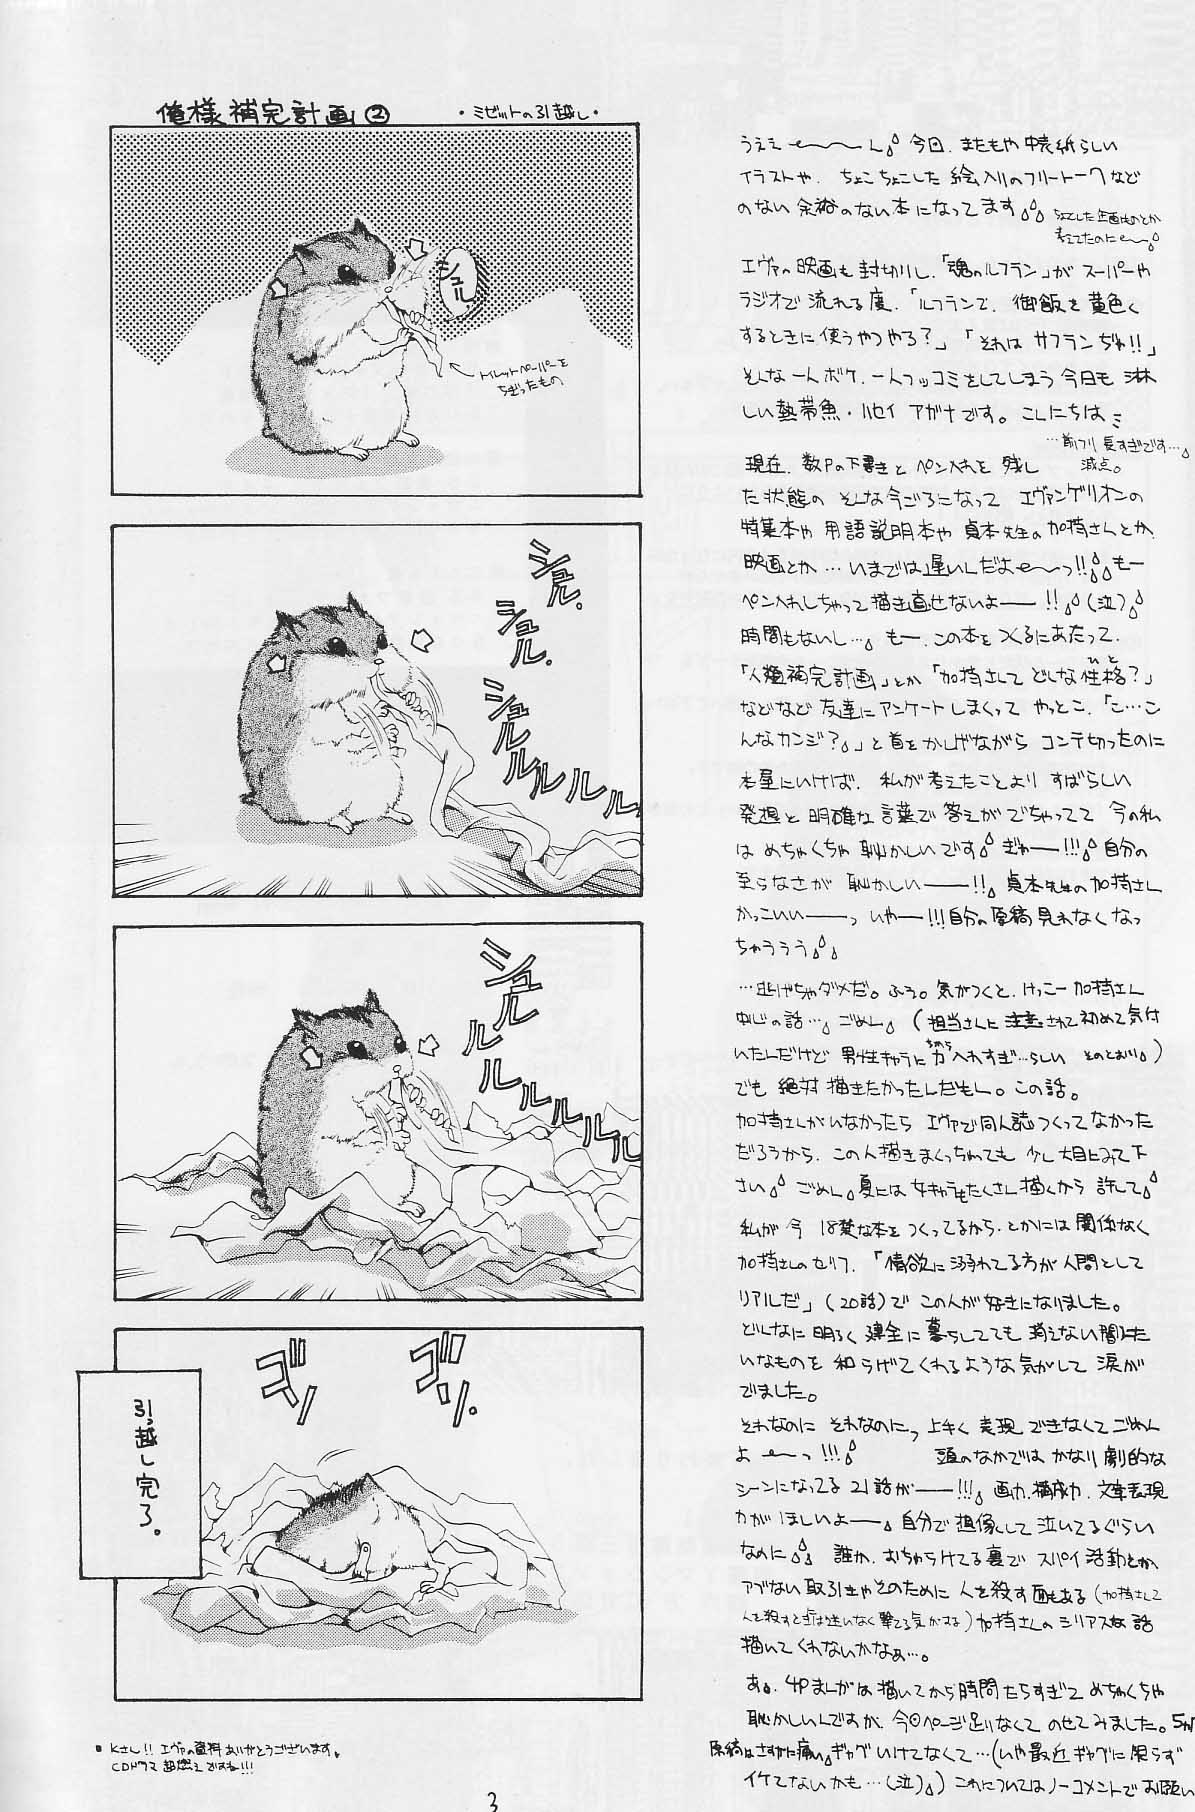 俺様補完計画②
・ミゼットの引越し・
シュル
トイレットペーパーを
ちぎったもの
シュル。
シュル。
シュルシュルルルルル
シュルルルルルルル
ゴソ
ゴソ。
引っ越し完了。
■ Kさん!! エヴァの資料ありがとうございます。
CDドラマ 超燃えですね!!!
3
うええ〜〜ん 今回、またもや 中表紙らしい
イラストや、ちょこちょこした 絵入りのフリートークなど
のない 余裕のない本になってます
ちょこした企画ものとか
考えてたのに〜
エヴァの映画も 封切りし、「魂のルフラン」が スーパーや
ラジオで 流れる度、「ルフランて、御飯を 黄色く
するときに 使うやつやろ?」「それは サフランぢゃ!!」
そんな 一人ボケ、一人ツッコミをしてしまう 今日も 淋
しい熱帯魚・ハセイ アガナです。こんにちは
…前フリ 長すぎです…
減点。
現在、数Pの下書きと ペン入れを 残し
た状態の そんな今ごろになって エヴァンゲリオンの
特集本や 用語説明本や 貞本先生の 加持さんとか、
映画とか…いまでは 遅いんだよ〜〜っ!! もー
ペン入れしちゃって 描き直せないよ――!!(泣)
時間もないし…。もー、この本を つくるにあたって、
「人類補完計画」とか「加持さんて どんな性格(ひと)?」
などなど 友達に アンケートしまくって やっとこ、「こ…こ
んなカンジ?」と 首を かしげながら コンテ切ったのに
本屋にいけば、私が考えたことより すばらしい
発想と 明確な 言葉で 答えが でちゃってて 今の私
は めちゃくちゃ 恥かしいです ぎゃー―!!! 自分の
至らなさが 恥かしい――!! 貞本先生の加持さん
かっこいい――っ いやー―!!!自分の原稿 見れなくなっ
ちゃううう
…逃げちゃダメだ。ふう。気がつくと、けっこー 加持さん
中心の話…。ごめん。(担当さんに 注意されて 初めて 気付
いたんだけど 男性キャラに 力(ちから)入れすぎ…らしい そのとおり)
でも 絶対 描きたかったんだもん。この話。
加持さんがいなかったら エヴァで同人誌つくってなかった
だろうから、この人描きまくっちゃっても 少し 大目にみて下
さい ごめん 夏には 女キャラもたくさん 描くから 許して
私が 今 18禁な本を つくってるから、とかには 関係なく
加持さんのセリフ、「情欲に 溺れてる方が 人間として
リアルだ」(20話)で この人が 好きになりました。
どんなに 明るく 健全に 暮らしてても 消えない 闇みた
いなものを 和らげてくれるような 気がして 涙が
でました。
それなのに それなのにっ 上手く 表現 できなくて ごめん
よ〜〜っ!!! 頭のなかでは かなり 劇的な
シーンになってる 21話が――!!! 画力、構成力、文章表現
力が ほしいよ――。自分で 想像して 泣いてるぐらい
なのに 誰か、おちゃらけてる裏で スパイ活動とか
アブない 取引きや そのために 人を殺す 面もある(加持さんて
人を殺すときは 迷いなく 撃てる 気がする)加持さんの シリアスな 話
描いてくれないかなぁ…。
あ、4Pまんがは 描いてから 時間 たちすぎて めちゃくちゃ
恥かしいんですが、今回ページ 足りなくて のせてみました。5ヶ月
原稿はさすがに痛い ギャグ いけてなくて…(いや 最近 ギャグに 限らず
イケてないかも…(泣)) これについては ノーコメントで お願い